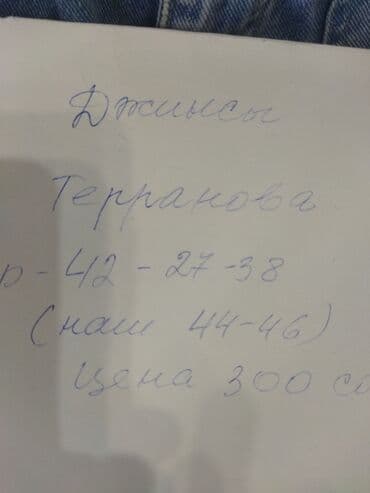 Джинсы
Терранова
р - 42 - 27 - 38
(наш 44-46)
Цена 300